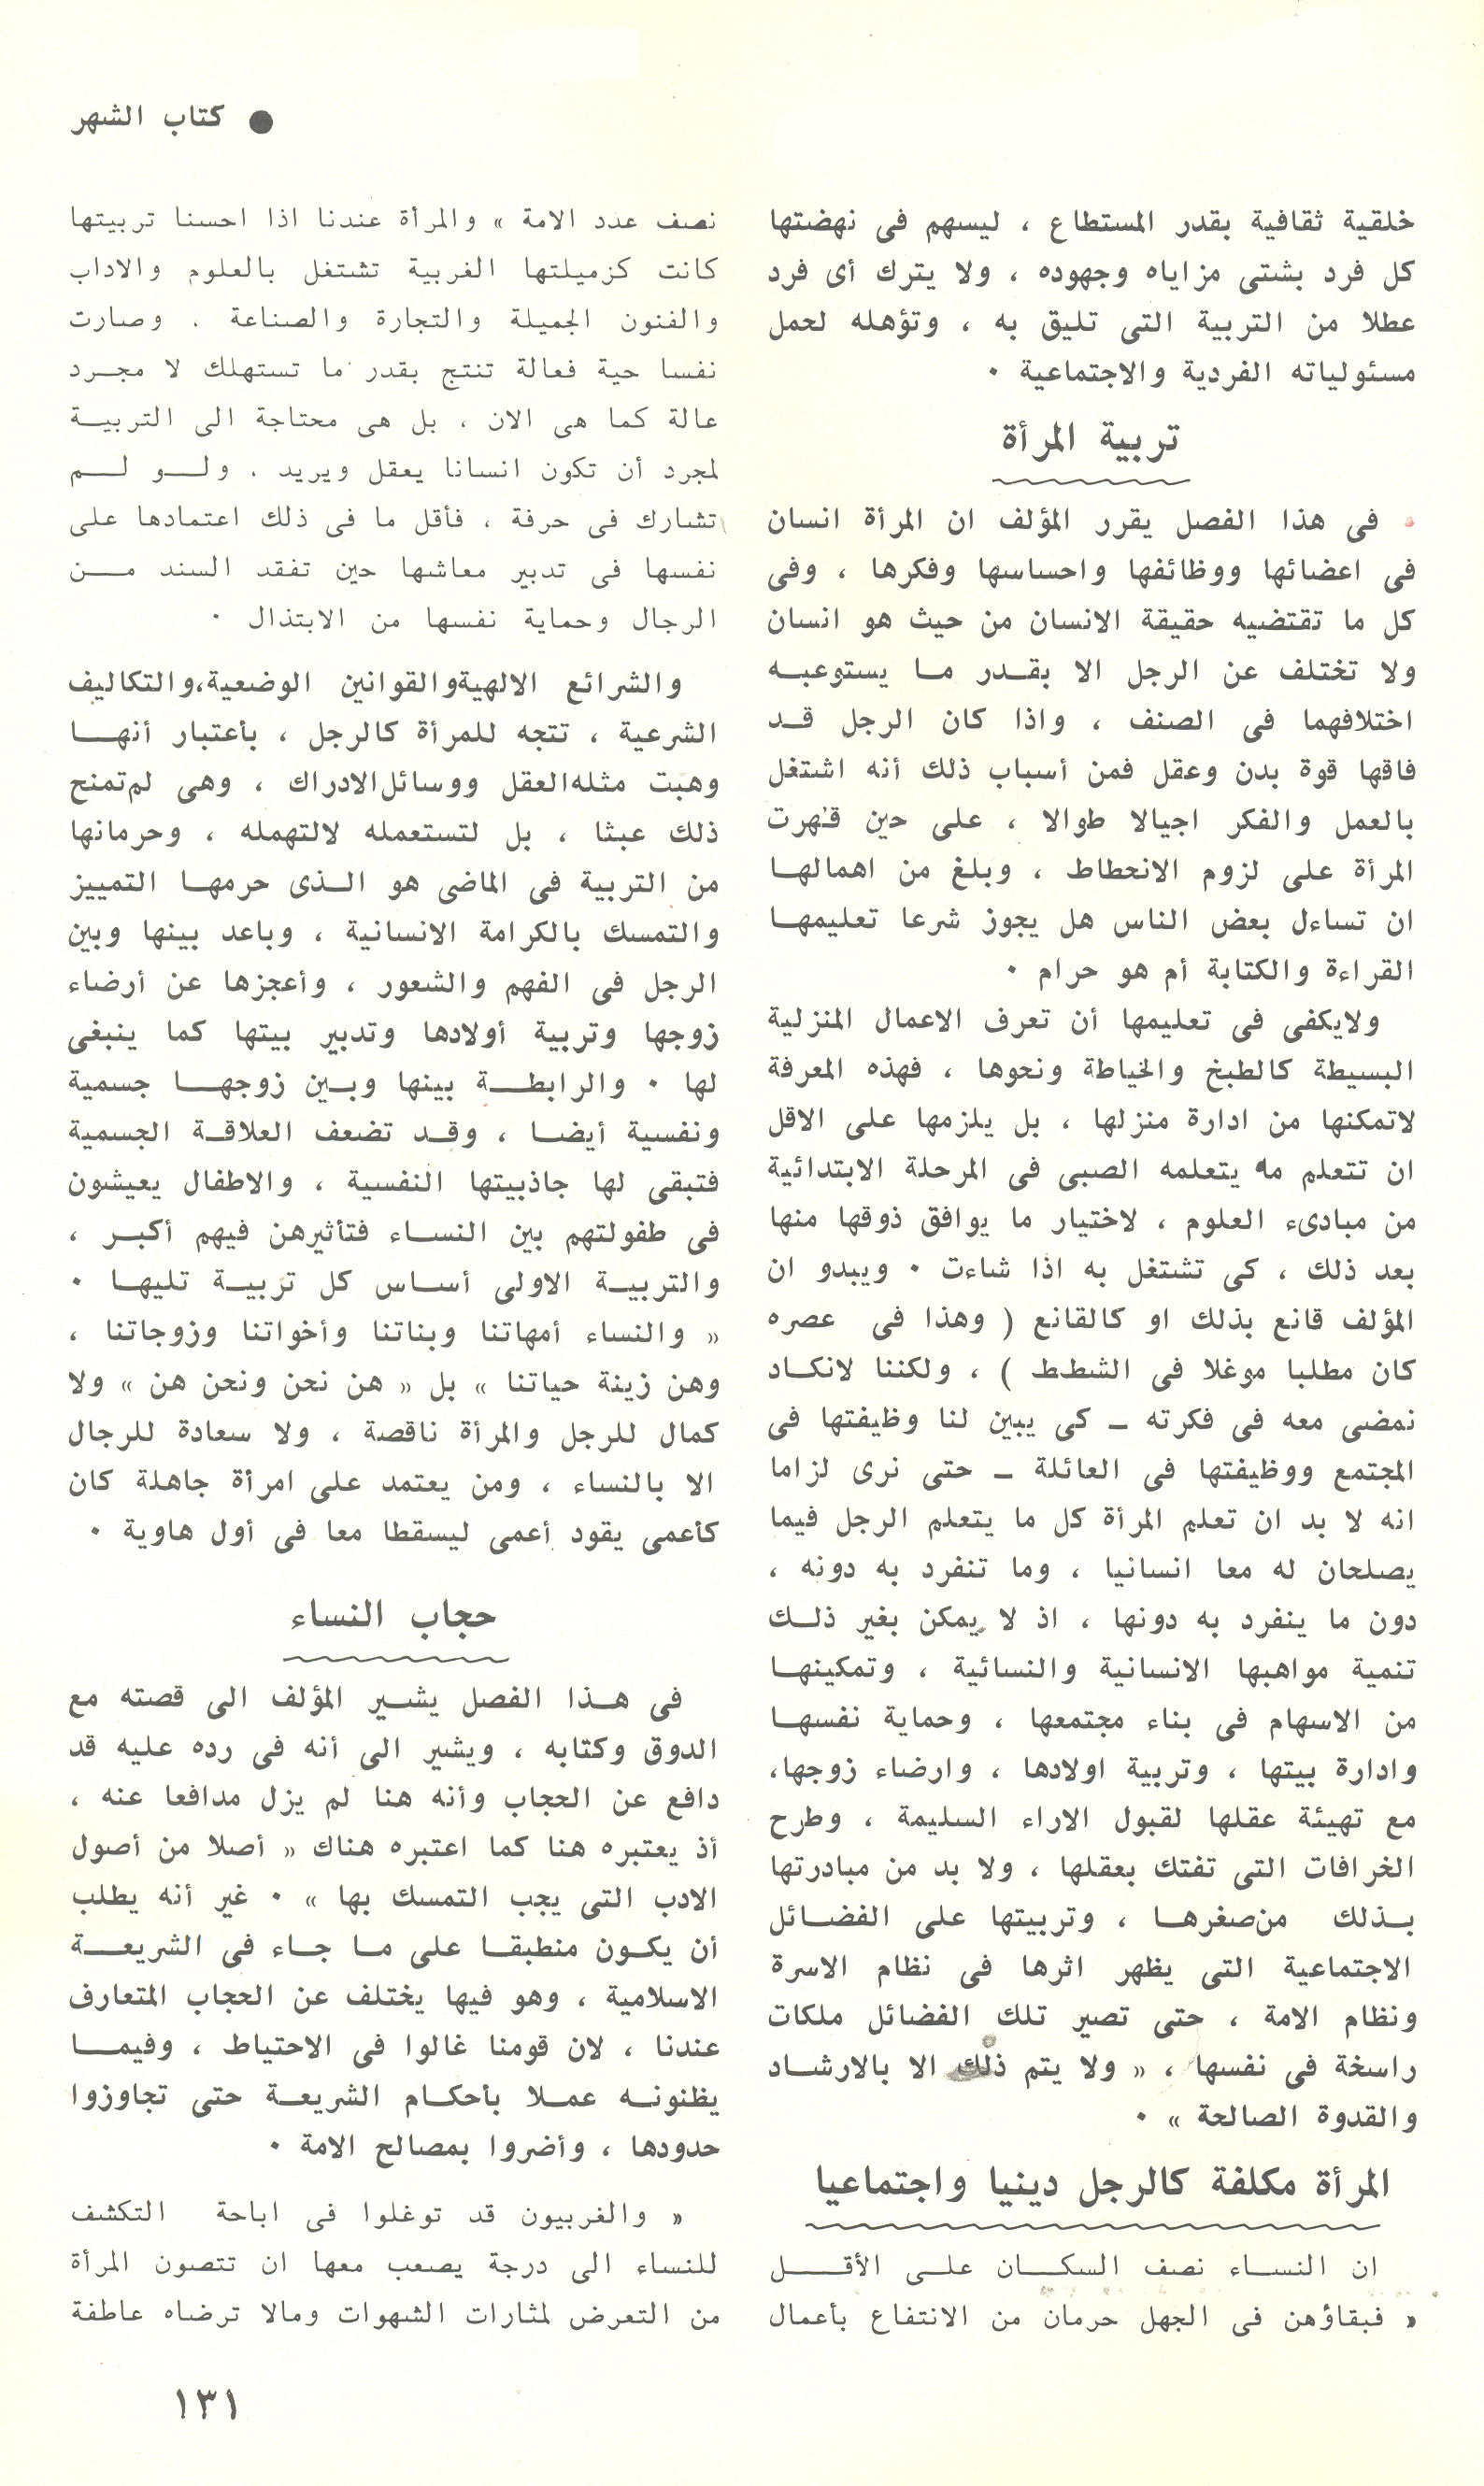 ● كتاب الشهر
خلقية ثقافية بقدر المستطاع ، ليسهم فى نهضتها
كل فرد بشتى مزاياه وجهوده ، ولا يترك أى فرد
عطلا من التربية التى تليق به ، وتؤهله لحمل
مسئولياته الفردية والاجتماعية ٠
تربية المرأة
فى هذا الفصل يقرر المؤلف ان المرأة انسان
فى اعضائها ووظائفها واحساسها وفكرها ، وفى
كل ما تقتضيه حقيقة الانسان من حيث هو انسان
ولا تختلف عن الرجل الا بقدر ما يستوعبه
اختلافهما فى الصنف ، واذا كان الرجل قد
فاقها قوة بدن وعقل فمن أسباب ذلك أنه اشتغل
بالعمل والفكر اجيالا طوالا ، على حين قُهرت
المرأة على لزوم الانحطاط ، وبلغ من اهمالها
ان تساءل بعض الناس هل يجوز شرعا تعليمها
القراءة والكتابة أم هو حرام ٠
ولايكفى فى تعليمها أن تعرف الاعمال المنزلية
البسيطة كالطبخ والخياطة ونحوها ، فهذه المعرفة
لاتمكنها من ادارة منزلها ، بل يلزمها على الاقل
ان تتعلم ما يتعلمه الصبى فى المرحلة الابتدائية
من مبادىء العلوم ، لاختيار ما يوافق ذوقها منها
بعد ذلك ، كى تشتغل به اذا شاءت ٠ ويبدو ان
المؤلف قانع بذلك او كالقانع ( وهذا فى عصره
كان مطلبا موغلا فى الشطط ) ، ولكننا لانكاد
نمضى معه فى فكرته ـ كى يبين لنا وظيفتها فى
المجتمع ووظيفتها فى العائلة ـ حتى نرى لزاما
انه لا بد ان تعلم المرأة كل ما يتعلم الرجل فيما
يصلحان له معا انسانيا ، وما تنفرد به دونه ،
دون ما ينفرد به دونها ، اذ لا يمكن بغير ذلك
تنمية مواهبها الانسانية والنسائية ، وتمكينها
من الاسهام فى بناء مجتمعها ، وحماية نفسها
وادارة بيتها ، وتربية اولادها ، وارضاء زوجها،
مع تهيئة عقلها لقبول الاراء السليمة ، وطرح
الخرافات التى تفتك بعقلها ، ولا بد من مبادرتها
بذلك من‌صغرها ، وتربيتها على الفضائل
الاجتماعية التى يظهر اثرها فى نظام الاسرة
ونظام الامة ، حتى تصير تلك الفضائل ملكات
راسخة فى نفسها ، « ولا يتم ذلك الا بالارشاد
والقدوة الصالحة » ٠
المرأة مكلفة كالرجل دينيا واجتماعيا
ان النساء نصف السكان على الأقل
« فبقاؤهن فى الجهل حرمان من الانتفاع بأعمال
نصف عدد الامة » والمرأة عندنا اذا احسنا تربيتها
كانت كزميلتها الغربية تشتغل بالعلوم والاداب
والفنون الجميلة والتجارة والصناعة . وصارت
نفسا حية فعالة تنتج بقدر ما تستهلك لا مجرد
عالة كما هى الان ، بل هى محتاجة الى التربية
لمجرد أن تكون انسانا يعقل ويريد ، ولو لم
تشارك فى حرفة ، فأقل ما فى ذلك اعتمادها على
نفسها فى تدبير معاشها حين تفقد السند من
الرجال وحماية نفسها من الابتذال ٠
والشرائع الالهيةوالقوانين الوضعية،والتكاليف
الشرعية ، تتجه للمرأة كالرجل ، بأعتبار أنها
وهبت مثله‌العقل ووسائل‌الادراك ، وهى لم‌تمنح
ذلك عبثا ، بل لتستعمله لالتهمله ، وحرمانها
من التربية فى الماضى هو الذى حرمها التمييز
والتمسك بالكرامة الانسانية ، وباعد بينها وبين
الرجل فى الفهم والشعور ، وأعجزها عن أرضاء
زوجها وتربية أولادها وتدبير بيتها كما ينبغى
لها ٠ والرابطة بينها وبين زوجها جسمية
ونفسية أيضا ، وقد تضعف العلاقة الجسمية
فتبقى لها جاذبيتها النفسية ، والاطفال يعيشون
فى طفولتهم بين النساء فتأثيرهن فيهم أكبر ،
والتربية الاولى أساس كل تربية تليها ٠
« والنساء أمهاتنا وبناتنا وأخواتنا وزوجاتنا ،
وهن زينة حياتنا » بل « هن نحن ونحن هن » ولا
كمال للرجل والمرأة ناقصة ، ولا سعادة للرجال
الا بالنساء ، ومن يعتمد على امرأة جاهلة كان
كأعمى يقود أعمى ليسقطا معا فى أول هاوية ٠
حجاب النساء
فى هذا الفصل يشير المؤلف الى قصته مع
الدوق وكتابه ، ويشير الى أنه فى رده عليه قد
دافع عن الحجاب وأنه هنا لم يزل مدافعا عنه ،
أذ يعتبره هنا كما اعتبره هناك « أصلا من أصول
الادب التى يجب التمسك بها » ٠ غير أنه يطلب
أن يكون منطبقا على ما جاء فى الشريعة
الاسلامية ، وهو فيها يختلف عن الحجاب المتعارف
عندنا ، لان قومنا غالوا فى الاحتياط ، وفيما
يظنونه عملا بأحكام الشريعة حتى تجاوزوا
حدودها ، وأضروا بمصالح الامة ٠
« والغربيون قد توغلوا فى اباحة التكشف
للنساء الى درجة يصعب معها ان تتصون المرأة
من التعرض لمثارات الشهوات ومالا ترضاه عاطفة
١٣١